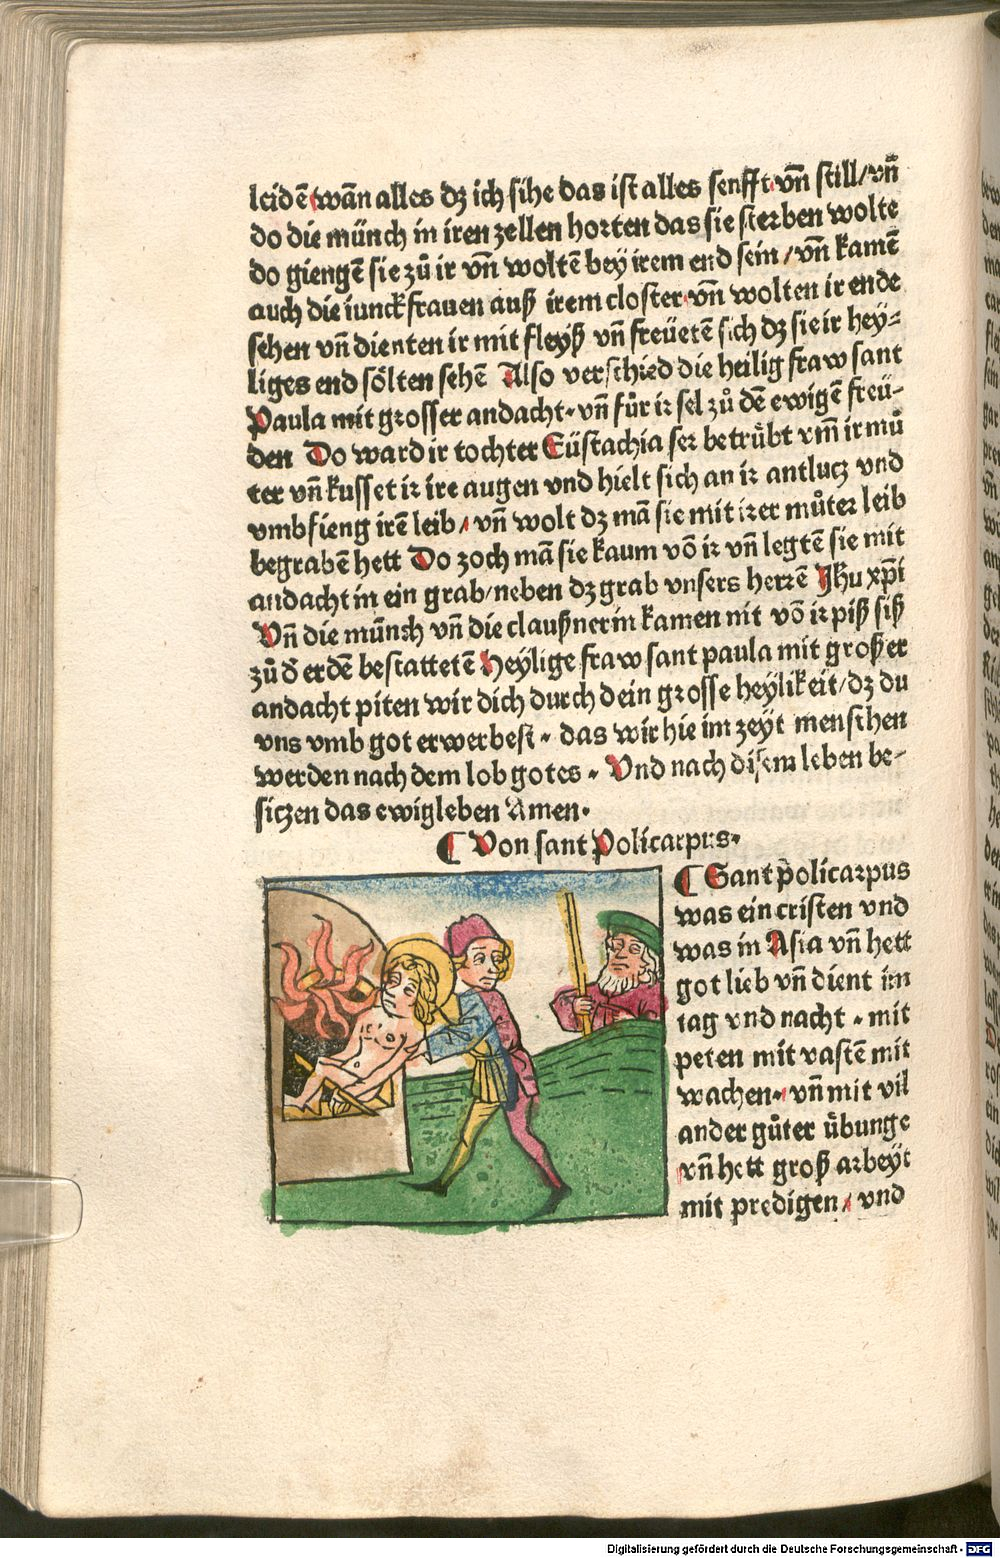 leidē wān alles dz ich sihe das ist alles senfft vn̄ still/vn̄
do die münch in iren zellen horten das sie sterben wolte
do giengē sie zů ir vn̄ woltē bey irem end sein/vn̄ kamē
auch die iunckfrauen auß irem closter vn̄ wolten ir ende
sehen vn̄ dienten ir mit fleyß vn̄ freüetē sich dz sie ir hey⸗
liges end sölten sehē Also verschied die heilig fraw sant
Paula mit grosser andacht. vn̄ fůr ir sel zů dē ewigē freü⸗
den Do ward ir tochter Eüstachia ser betrübt vm̄ ir mů
ter vn̄ kusset ir ire augen vnd hielt sich an ir antlucz vnd
vmbfieng irē leib/vn̄ wolt dz mā sie mit irer můter leib
begrabē hett Do zoch mā sie kaum vō ir vn̄ legtē sie mit
andacht in ein grab/neben dz grab vnsers herrē Jhu xp̄i
Vn̄ die münch vn̄ die claußnerin kamen nit vō ir piß siß
zů d̄ erdē bestattetē Heylige fraw sant paula mit großer
andacht piten wir dich durch dein grosse heylikeit/dz du
vns vmb got erwerbest. das wir hie im zeyt menschen
werden nach dem lob gotes. Vnd nach disem leben be⸗
siczen das ewigleben Amen.
¶ Von sant Policarpus.
¶ Sant policarpus
was ein cristen vnd
was in Asia vn̄ hett
got lieb vn̄ dient im
tag vnd nacht. mit
peten mit vastē mit
wachen. vn̄ mit vil
ander gůter übunge
vn̄ hett groß arbeyt
mit predigen/vnd
Digitalisierung gefördert durch die Deutsche Forschungsgemeinschaft - DFG